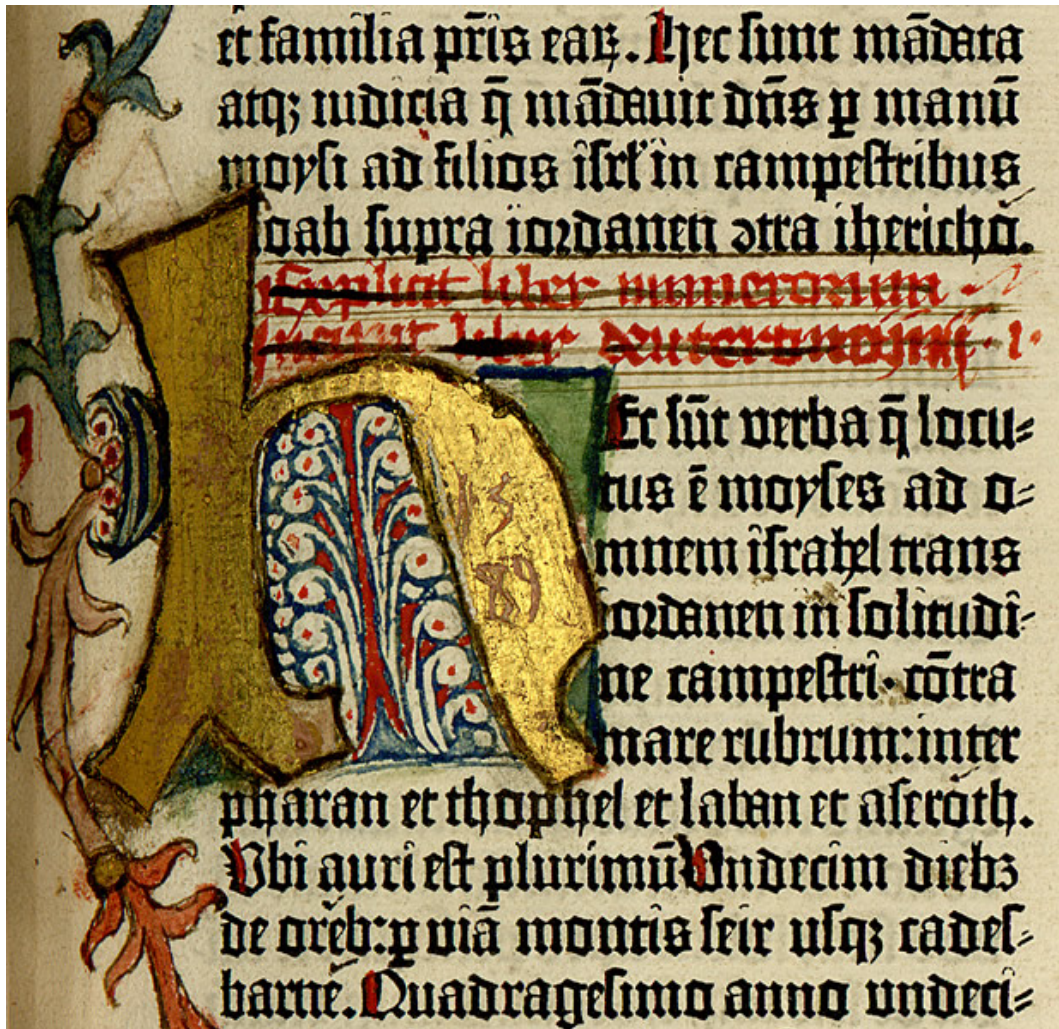 et familia p̄ris eaꝝ. Hec sunt mādata
atqꝫ iudicia q̄ mādauit dn̄s ꝑ manū
moysi ad filios isrl̓ in campestribus
moab supra iordanen ↄtra ihericho.
Explicit liber numerorum
Incipit liber
HEc sūt verba q̄ locu⸗
tus ē moyses ad o⸗
mnem israhel trans
iordanen in solitudi⸗
ne campestri. cōtra
mare rubrum: inter
pharan et thophel et laban et aseroth.
Vbi auri est plurimū Vndecim diebꝫ
de oreb: ꝑ viā montis seir usqꝫ cades⸗
barne. Quadragesimo anno undeci⸗
15
89